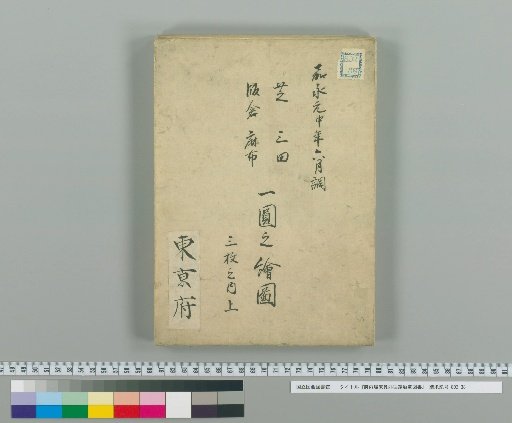 嘉永元申年六月調
芝 三田
飯倉 麻布
一圓之繪圖
三枚之内上
東京府
国立国会図書館